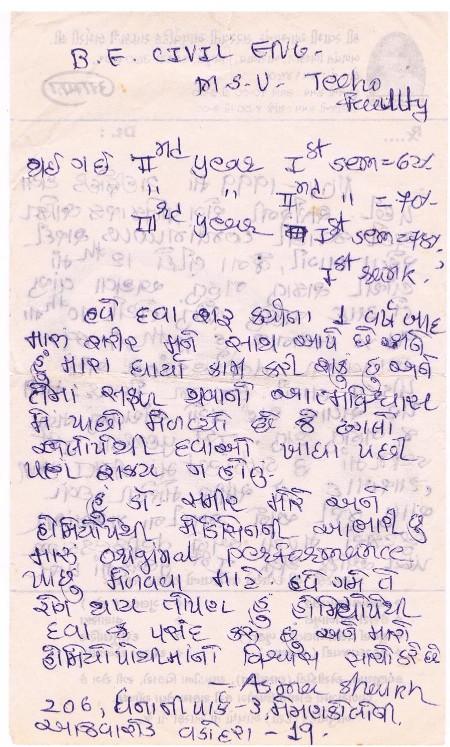 B.E. CIVIL ENG-
M.S.U- Techo
Faculity
થઈ ગઈ IInd year Ist sem = 6
" " IInd " = 70
IIIrd year Ist sem =
Ist
હવે દવા શરૂ કર્યાના 1 વર્ષ બાદ
મારું શરીર મને સાથ આપે છે અને
હું મારા ધાર્યા કામ કરી શકું છું અને
તેમાં સફળ થવાનો આત્મવિશ્વાસ
મેં પાછો મેળવ્યો છે જે
એલોપેથી દવાઓ ખાધા પછી
પણ શક્ય ન હોતું
હું ડૉ. સમીર મોરે અને
હોમિયોપેથી મેડિસિનની આભારી છું
મારું original performance
પાછું મેળવવા માટે હવે ગમે તે
રોગ થાય તોપણ હું હોમિયોપેથી
દવા જ પસંદ કરું છું અને મારો
હોમિયોપેથીમાંનો વિશ્વાસ સાચો ઠરે છે
- Asma Shaikh
206, ધનાની પાર્ક - 3, મેમણકોલોની,
આજવારોડ વડોદરા - 19.